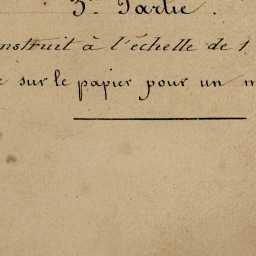 3e Partie.
nstruit à l'échelle de 1
sur le papier pour un m